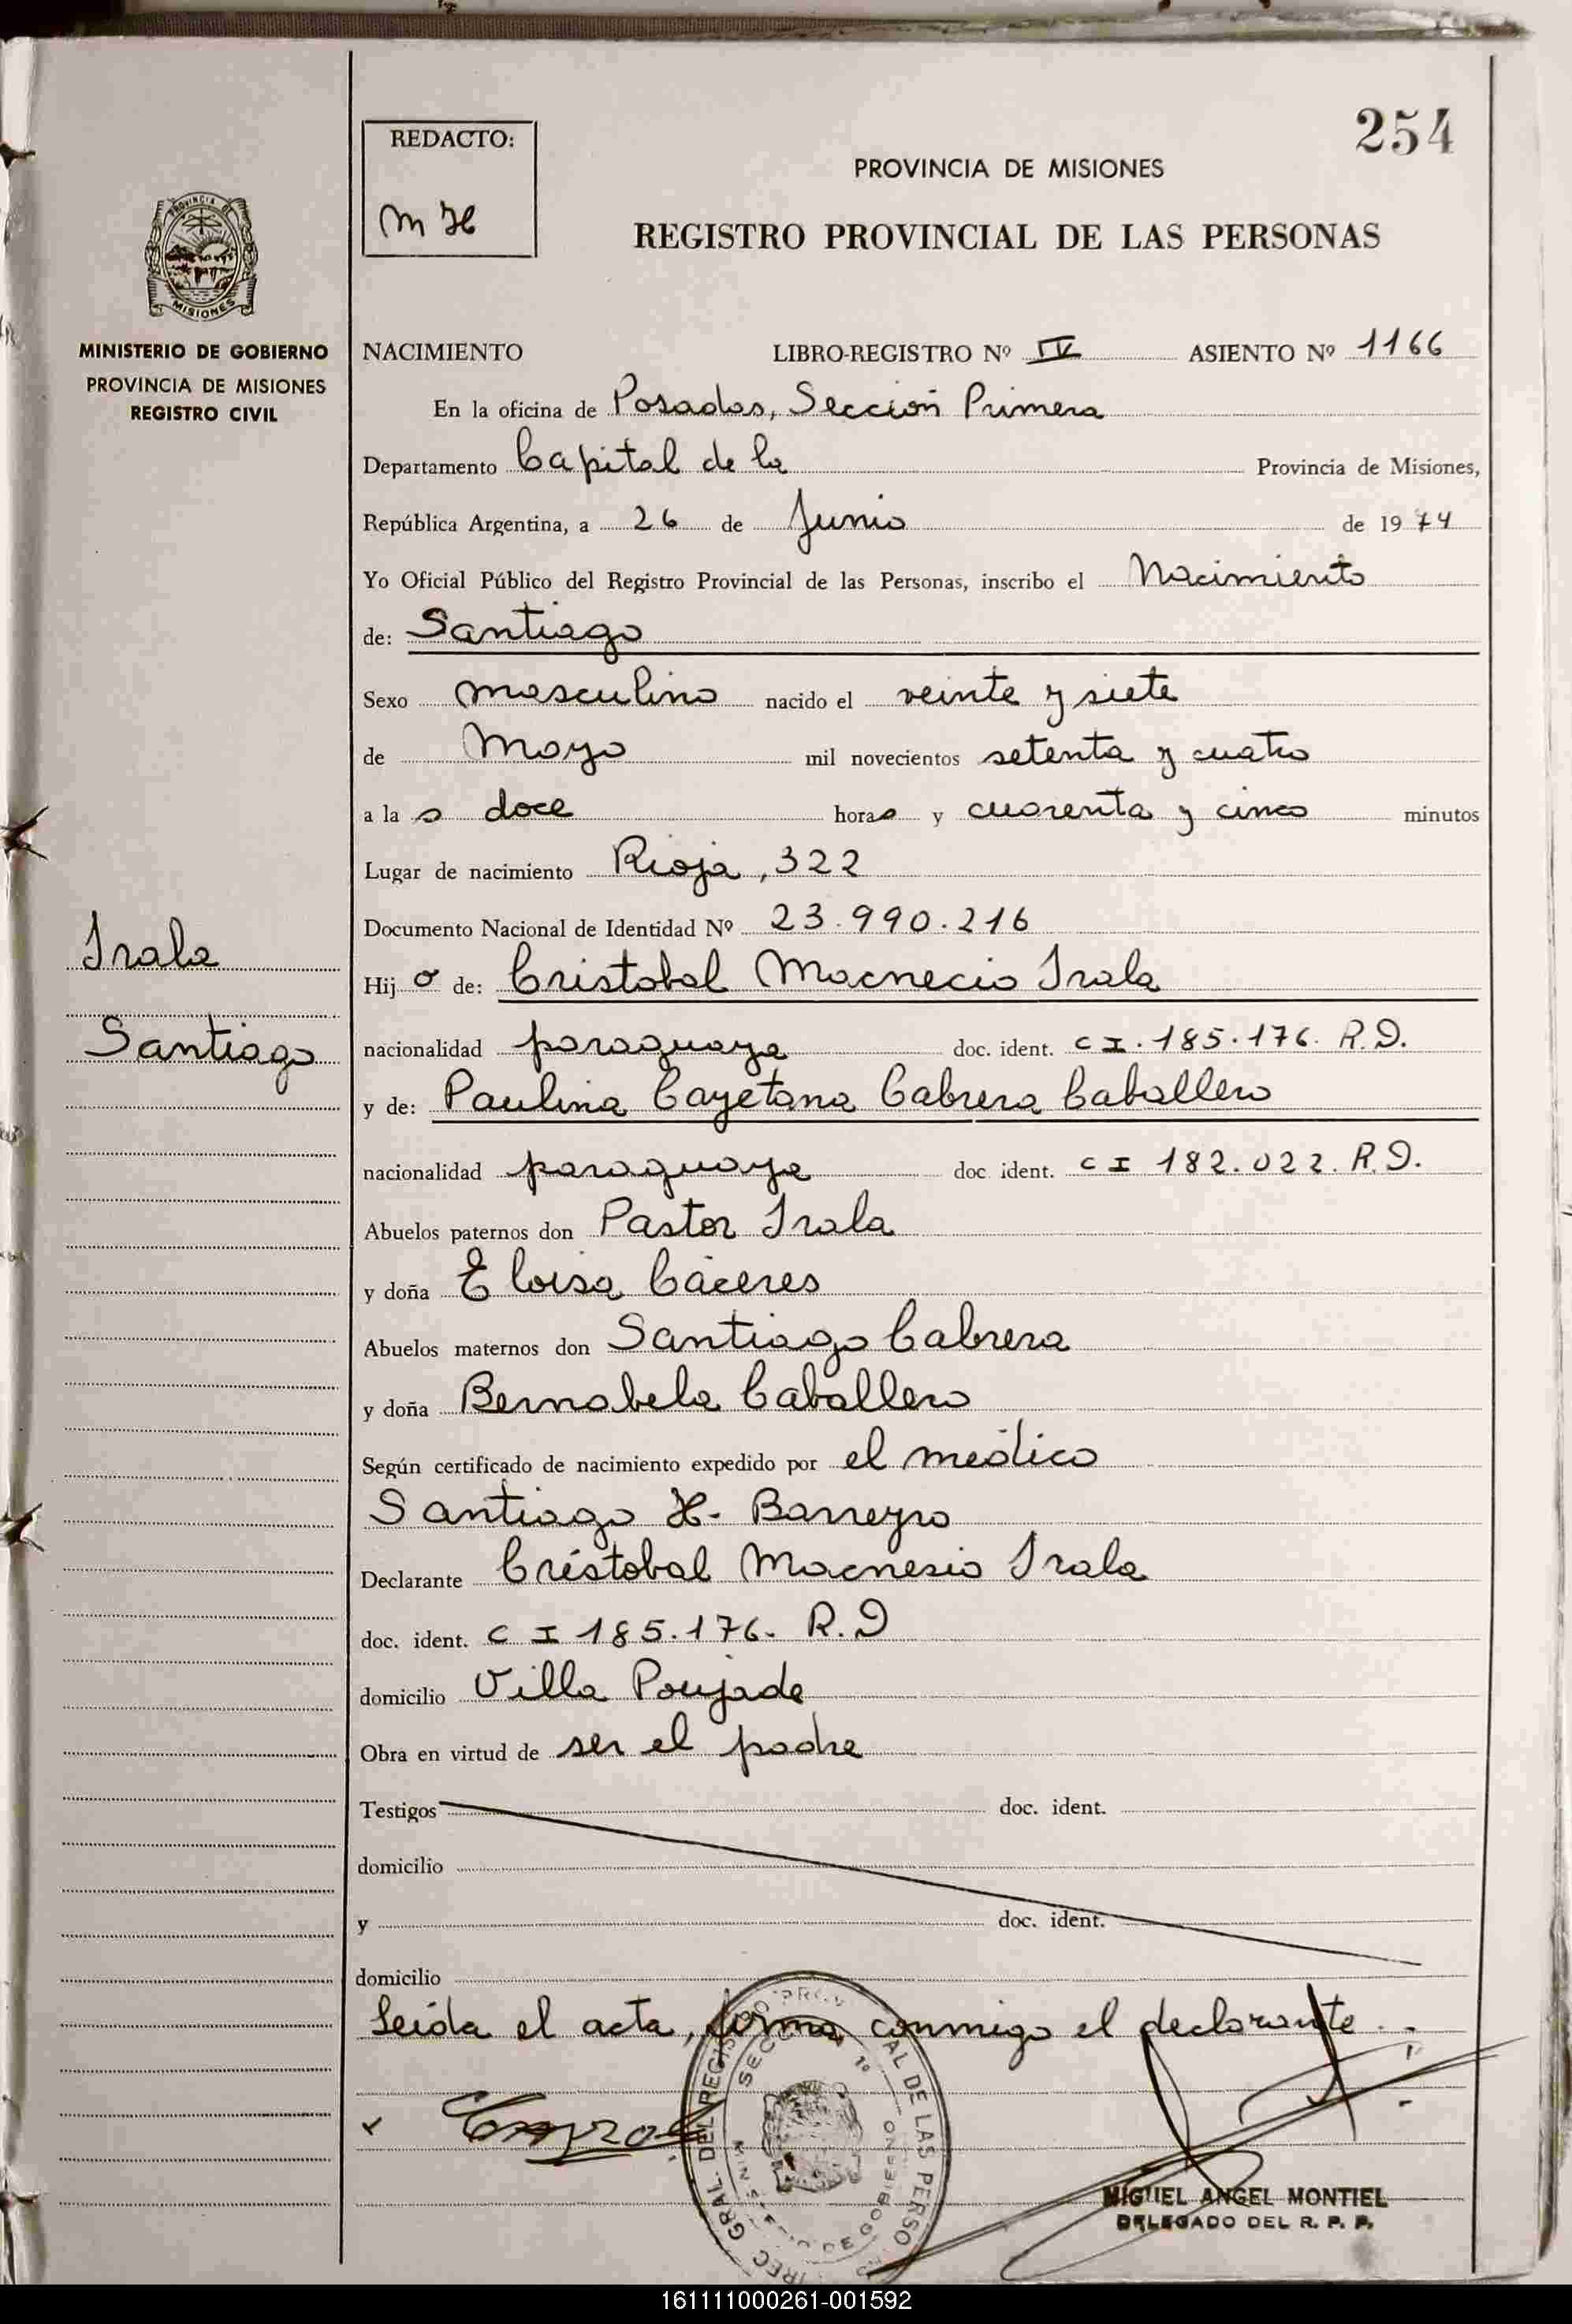 254
REDACTO:
M H
PROVINCIA DE MISIONES
REGISTRO PROVINCIAL DE LAS PERSONAS
PROVINCIA DE
MISIONES
MINISTERIO DE GOBIERNO
PROVINCIA DE MISIONES
REGISTRO CIVIL
NACIMIENTO LIBRO-REGISTRO Nº IV ASIENTO Nº 1166
En la oficina de Posadas, Sección Primera
Departamento Capital de la Provincia de Misiones,
República Argentina, a 26 de Junio de 1974
Yo Oficial Público del Registro Provincial de las Personas, inscribo el Nacimiento
de: Santiago
Sexo masculino nacido el veinte y siete
de Mayo mil novecientos setenta y cuatro
a la s doce horas y cuarenta y cinco minutos
Lugar de nacimiento Rioja, 322
Documento Nacional de Identidad Nº 23.990.216
Irala
Hijo de: Cristobal Macnecio Irala
Santiago
nacionalidad paraguaya doc. ident. CI. 185.176. R.D.
y de: Paulina Cayetana Cabrera Caballero
nacionalidad paraguaya doc ident. CI 182.022. R.D.
Abuelos paternos don Pastor Irala
y doña Eloisa Cáceres
Abuelos maternos don Santiago Cabrera
y doña Bernabela Caballero
Según certificado de nacimiento expedido por el médico
Santiago H. Barreyro
Declarante Cristobal Macnesio Irala
doc. ident. CI 185.176. R.D
domicilio Villa Poujade
Obra en virtud de ser el padre
Testigos doc. ident.
domicilio
y doc. ident.
domicilio
Leída el acta, firma conmigo el declarante.
MIGUEL ANGEL MONTIEL
DELEGADO DEL R. P. P.
161111000261-001592